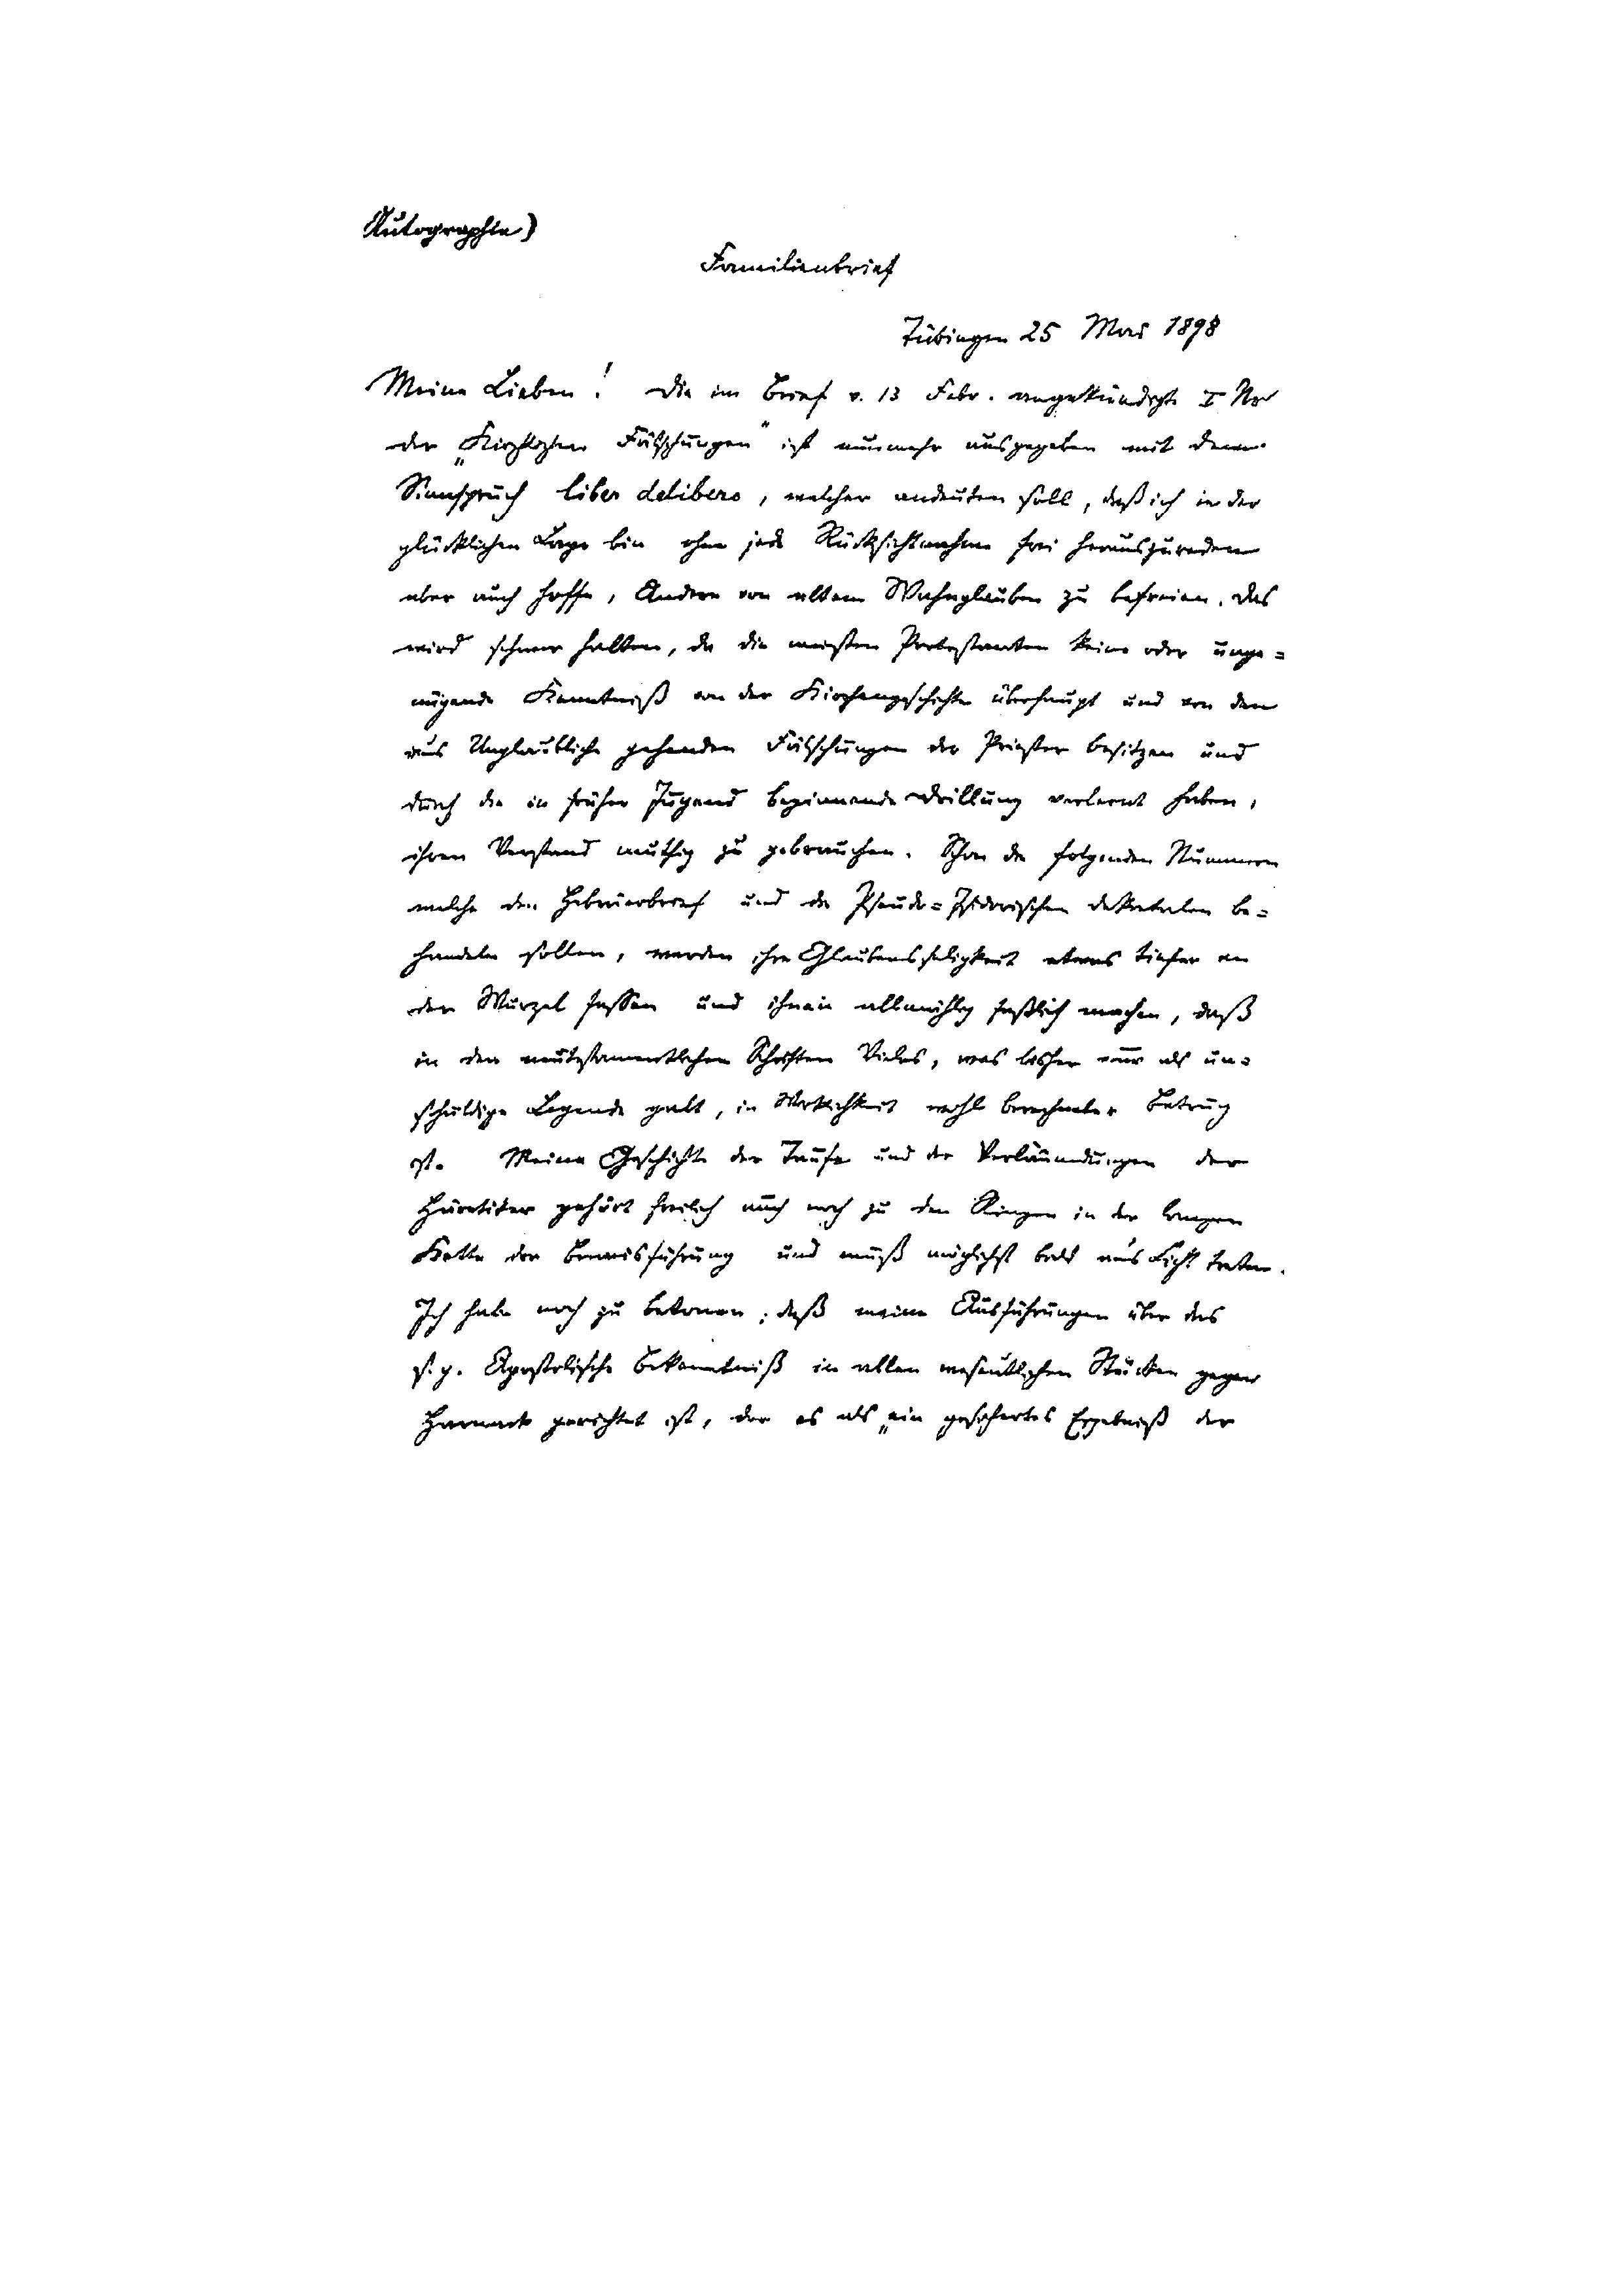 Autographie)
Familienbrief
Tübingen 25 Mai 1898
Meine Lieben! Die im Brief v. 13 Febr. angekündigte I Nr
der „Kirchlichen Fälschungen" ist nunmehr ausgegeben mit dem
Sinnspruch liber delibero, welcher andeuten soll, daß ich in der
glücklichen Lage bin ohne jede Rücksichtnahme frei herauszureden
aber auch hoffe, Andere von altem Wahnglauben zu befreien. Das
wird schwer halten, da die meisten Protestanten keine oder unge=
nügende Kenntniß von der Kirchengeschichte überhaupt und von den
ans Unglaubliche gehenden Fälschungen der Priester besitzen und
durch die in früher Jugend beginnende Drillung verlernt haben,
ihren Verstand muthig zu gebrauchen. Schon die folgenden Nummern
welche den Hebräerbrief und die Pseudo=Isidorischen Dekretalen be=
handeln sollen, werden ihre Glaubensseligkeit etwas tiefer an
der Wurzel fassen und ihnen allmählig faßlich machen, daß
in den neutestamentlichen Schriften Vieles, was bisher nur als un=
schuldige Legende galt, in Wirklichkeit wohl berechneter Betrug
ist. Meine Geschichte der Taufe und der Verläumdungen der
Häretiker gehört freilich auch noch zu den Ringen in der langen
Kette der Beweisführung und muß möglichst bald an's Licht treten.
Ich habe noch zu betonen, daß meine Ausführungen über das
s. g. Apostolische Bekenntniß in allen wesentlichen Stücken gegen
Harnack gerichtet ist, der es als „ein gesichertes Ergebniß der